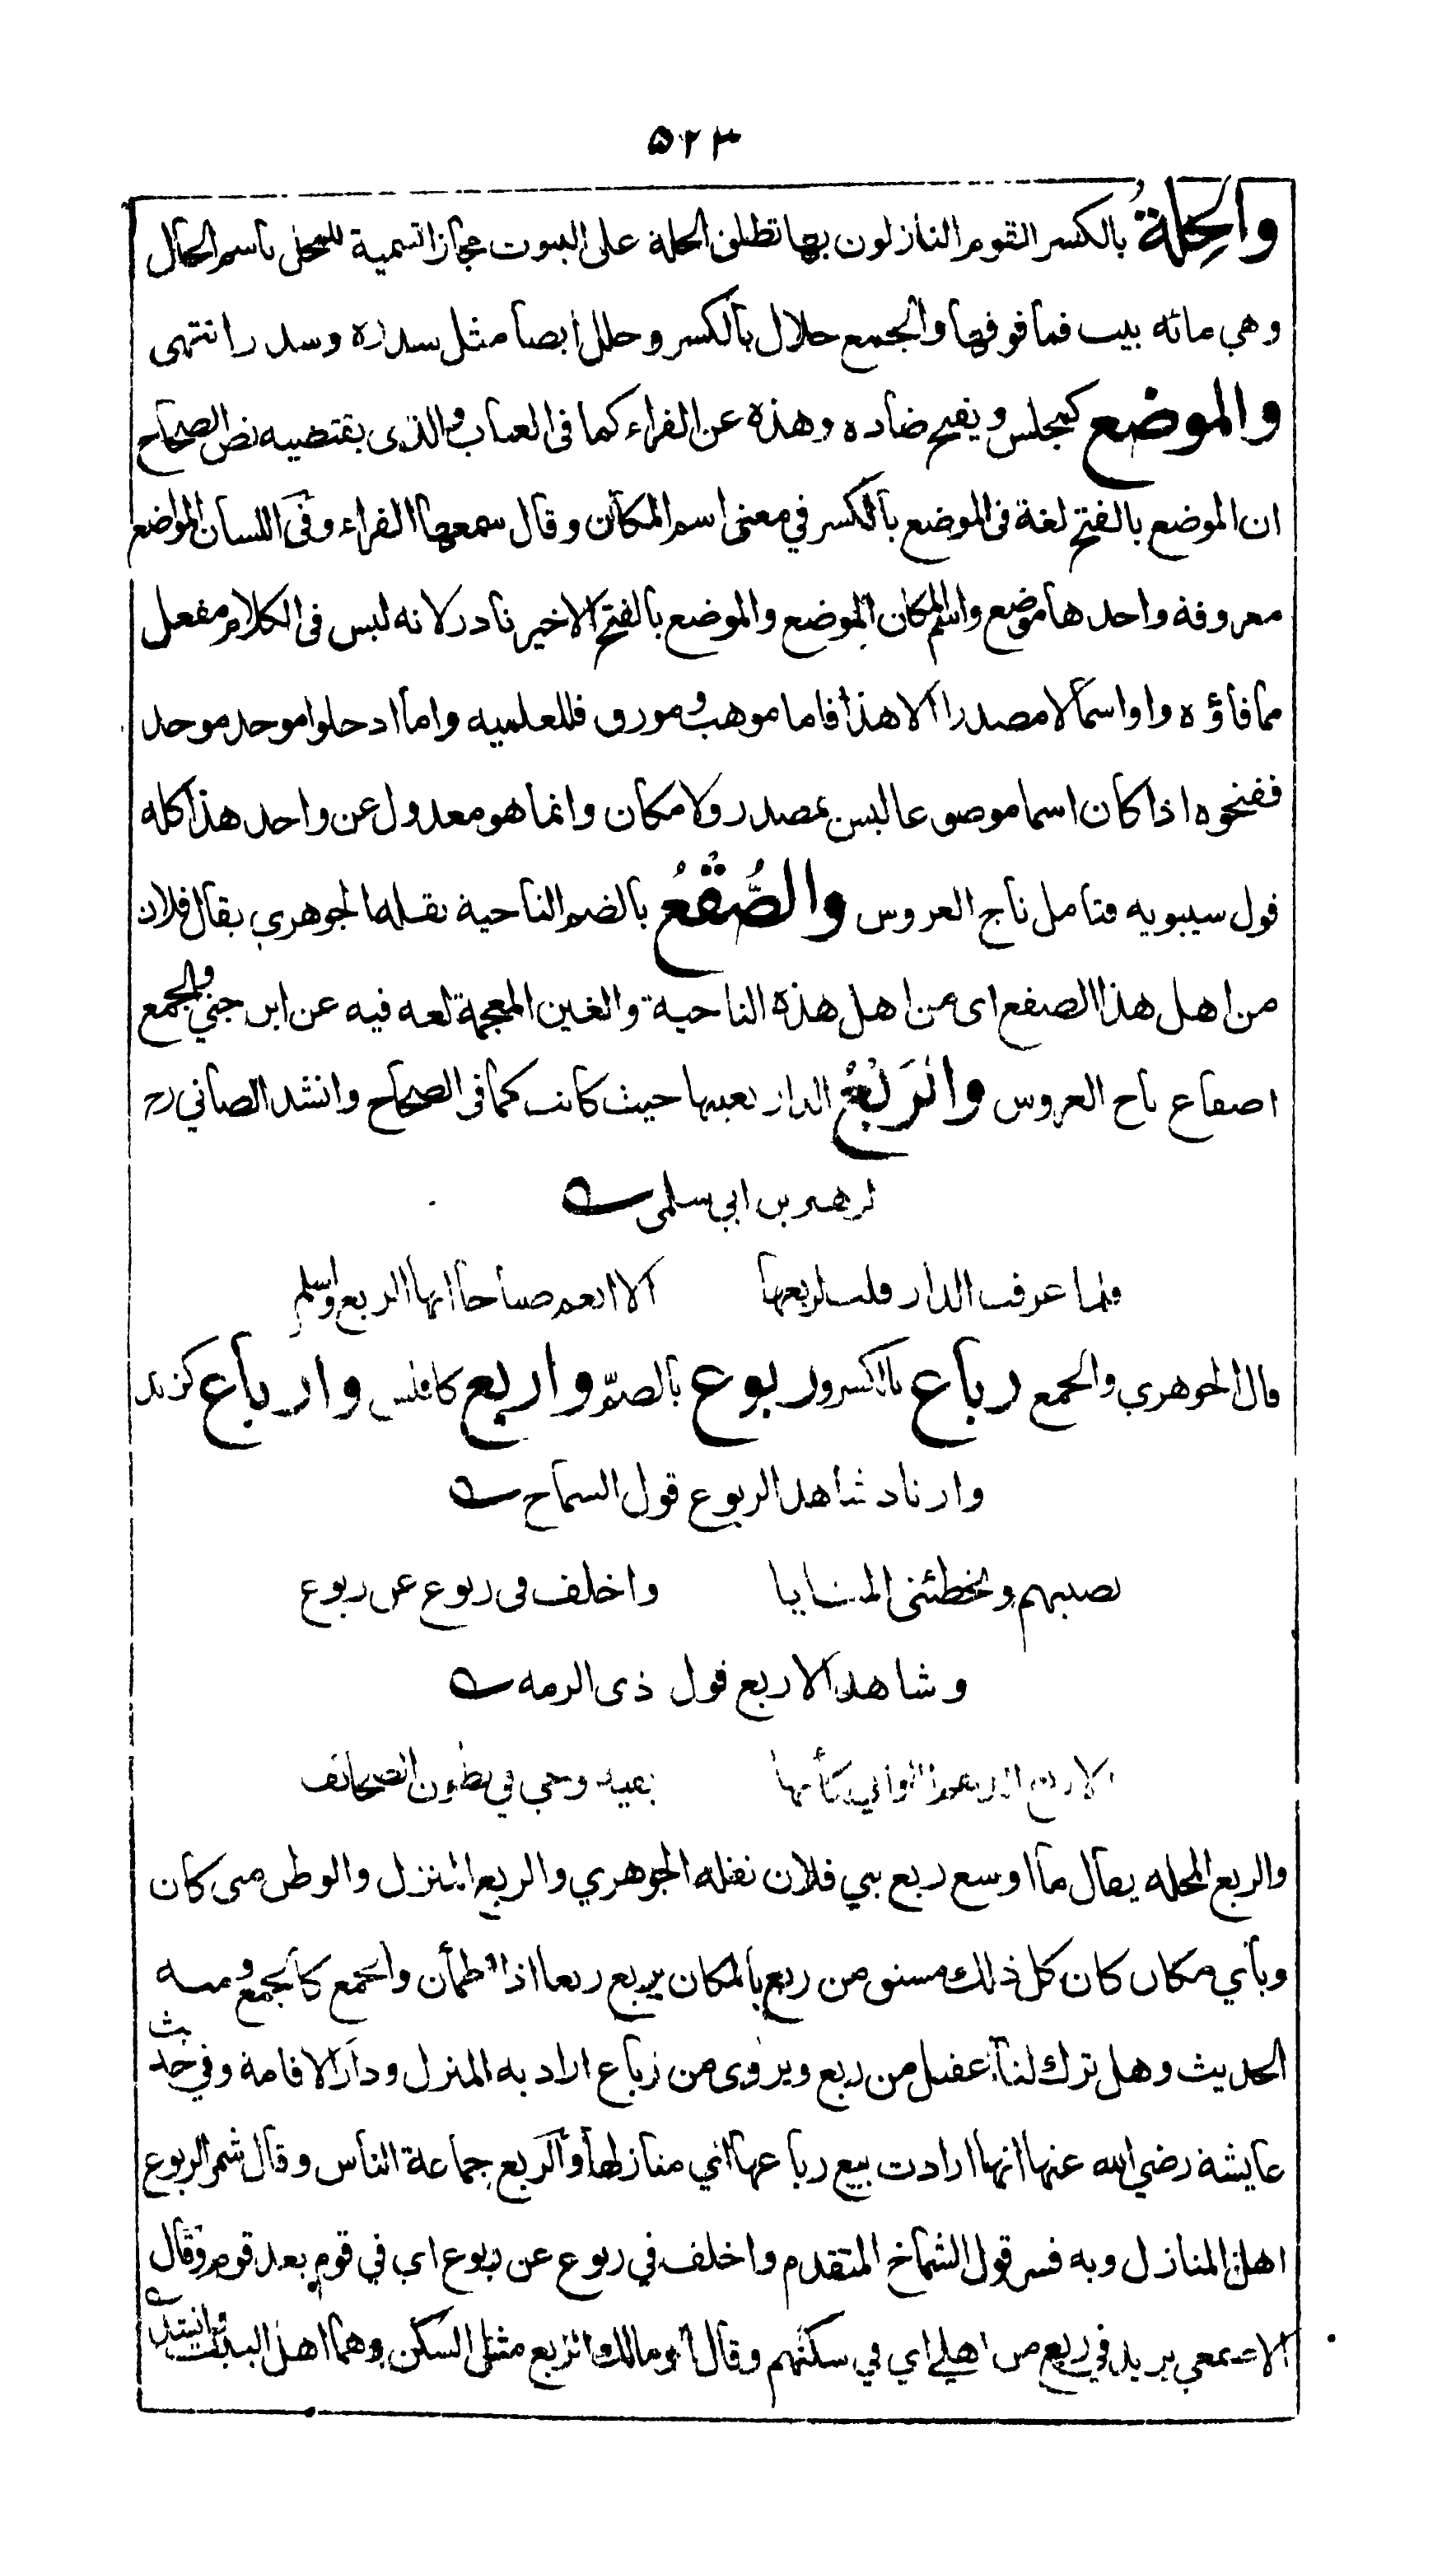 ٥٢٣
والحِلةُ بالكسر القوم النازلون بها تطلق الحلة على البيوت مجازا تسمية للمحل باسم الحال
وهي مائه بيت فما فوقها والجمع حلال بالكسر وحلل ايضا مثل سدرة وسدر انتهى
والموضع كمجلس ويفتح ضاده وهذه عن الفراء كما فى العباب والذى يقتضيه نص الصحاح
ان الموضع بالفتح لغة فى الموضع بالكسر في معنى اسم المكان وقال سمعها الفراء وفى اللسان المواضع
معروفة واحدها موضع واسم المكان الموضع والموضع بالفتح الاخير نادر لانه ليس فى الكلام مفعل
مما فاؤه واوا اسما لا مصدرا الا هذا فاما موهب ومورق فللعلميه واما ادخلوا موحد موحد
ففتحوه اذا كان اسما موضوعا ليس بمصدر ولا مكان وانما هو معدول عن واحد هذا كله
قول سيبويه فتامل تاج العروس والصُّقْعُ بالضم الناحية نقله الجوهري يقال فلان
من اهل هذا الصقع اى من اهل هذه الناحية والغين المعجمة لغه فيه عن ابن جني والجمع
اصقاع تاج العروس والرَبْعُ الدار بعينها حيث كانت كما فى الصحاح وانشد الصاني رح
لزهير بن ابي سلمى
فلما عرفت الدار قلت لربعها الا انعم صباحا ايها الربع واسلم
قال الجوهري والجمع رباع بالكسر وربوع بالضم واربع كافلس وارباع كزند
وارناد شاهد الربوع قول السماح
تصيبهم وتخطئنى المنايا واخلف فى ربوع عن ربوع
وشاهد الاربع قول ذى الرمه
الاربع الدهم اللواتي كأنها بقيه وحي في بطون الصحائف
والربع المحله يقال ما اوسع ربع بني فلان نقله الجوهري والربع المنزل والوطن متى كان
وبأي مكان كان كل ذلك مشتق من ربع بالمكان يربع ربعا اذا اطمأن والجمع كالجمع ومنه
الحديث وهل ترك لنا عقيل من ربع ويروى من رباع اراد به المنزل ودار الاقامة وفي حديث
عايشة رضي الله عنها انها ارادت بيع رباعها اي منازلها والربع جماعة الناس وقال شمر الربوع
اهل المنازل وبه فسر قول الشماخ المتقدم واخلف في ربوع عن ربوع اي في قوم بعد قوم وقال
الاصمعي يريد في ربع من اهلي اي في سكنهم وقال ابو مالك الربع مثل السكن وهما اهل البيت وانشد